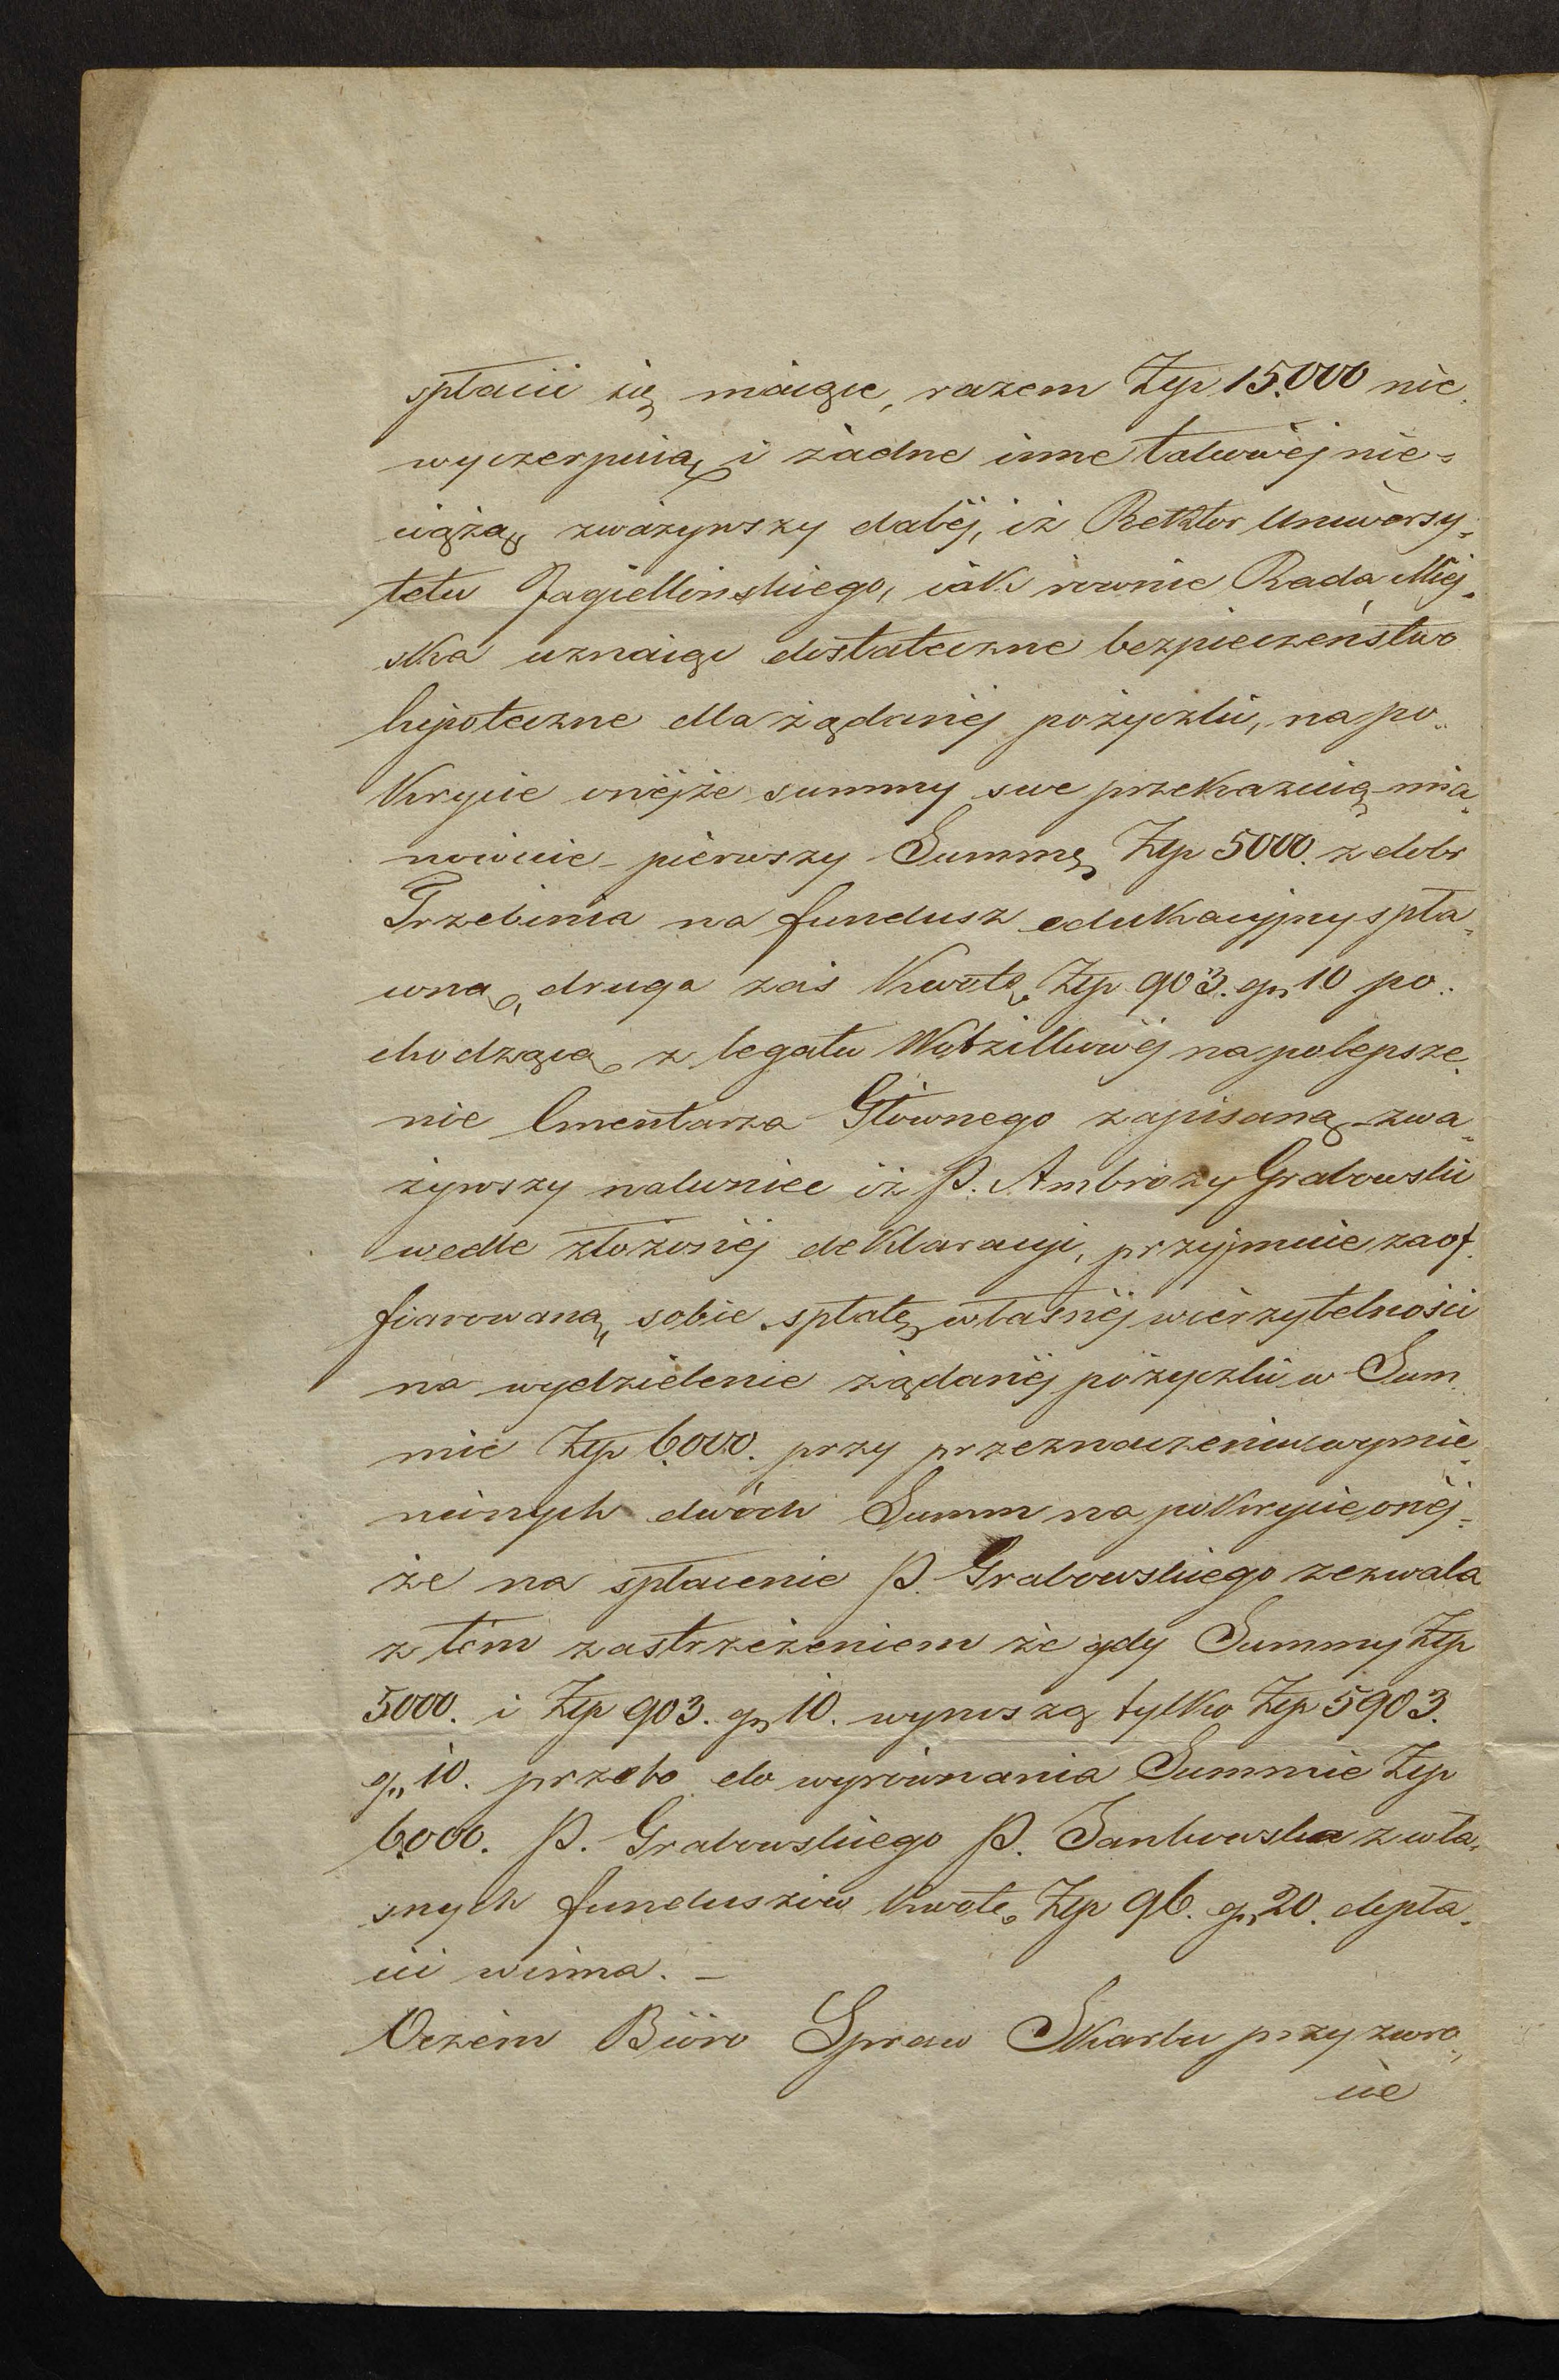 spłacić się maiące, razem Złp 15.000 nie
wyczerpuią i żadne inne takowéj nie=
ciążą, zważywszy daléj, iż Rektor Uniwersy=
tetu Jagiellońskiego, iak równie Rada Miej=
ska uznaiąc dostateczne bezpieczeństwo
hipoteczne dla żądanéj pożyczki, na po=
krycie onéjże summy swe przekazuią mia=
nowicie – pierwszy Summę Złp 5000. z dóbr
Trzebinia na fundusz edukacyjny spła=
coną, druga zaś kwotę Złp 903. gr 10 po=
chodzącą z legatu Wodzickiéj na polepsze=
nie Cmentarza Głównego zapisaną – zwa=
żywszy nakoniec iż P. Ambroży Grabowski
wedle złożonéj deklaracyi, przyjmuie zaof=
fiarowaną sobie spłatę własnéj wierzytelności
na wydzielenie żądanéj pożyczki w Sum=
mie Złp 6000. przy przeznaczeniu wymie=
nionych dwóch Summ na pokrycie onéj=
że na spłacenie P. Grabowskiego zezwala
z tém zastrzeżeniem że gdy Summy Złp
5000. i Złp 903. gr 10. wynoszą tylko Złp 5903.
gr 10. przeto do wyrównania Summie Złp
6000. P. Grabowskiego P. Jankowska z wła=
snych funduszów kwotę Złp 96. gr 20. dopła=
cić winna. –
O czém Bióro Spraw Skarbu przy zwro=
cie